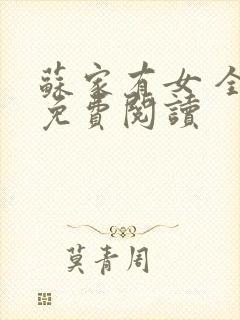 蘇家有女 全
免費閱讀
莫青周